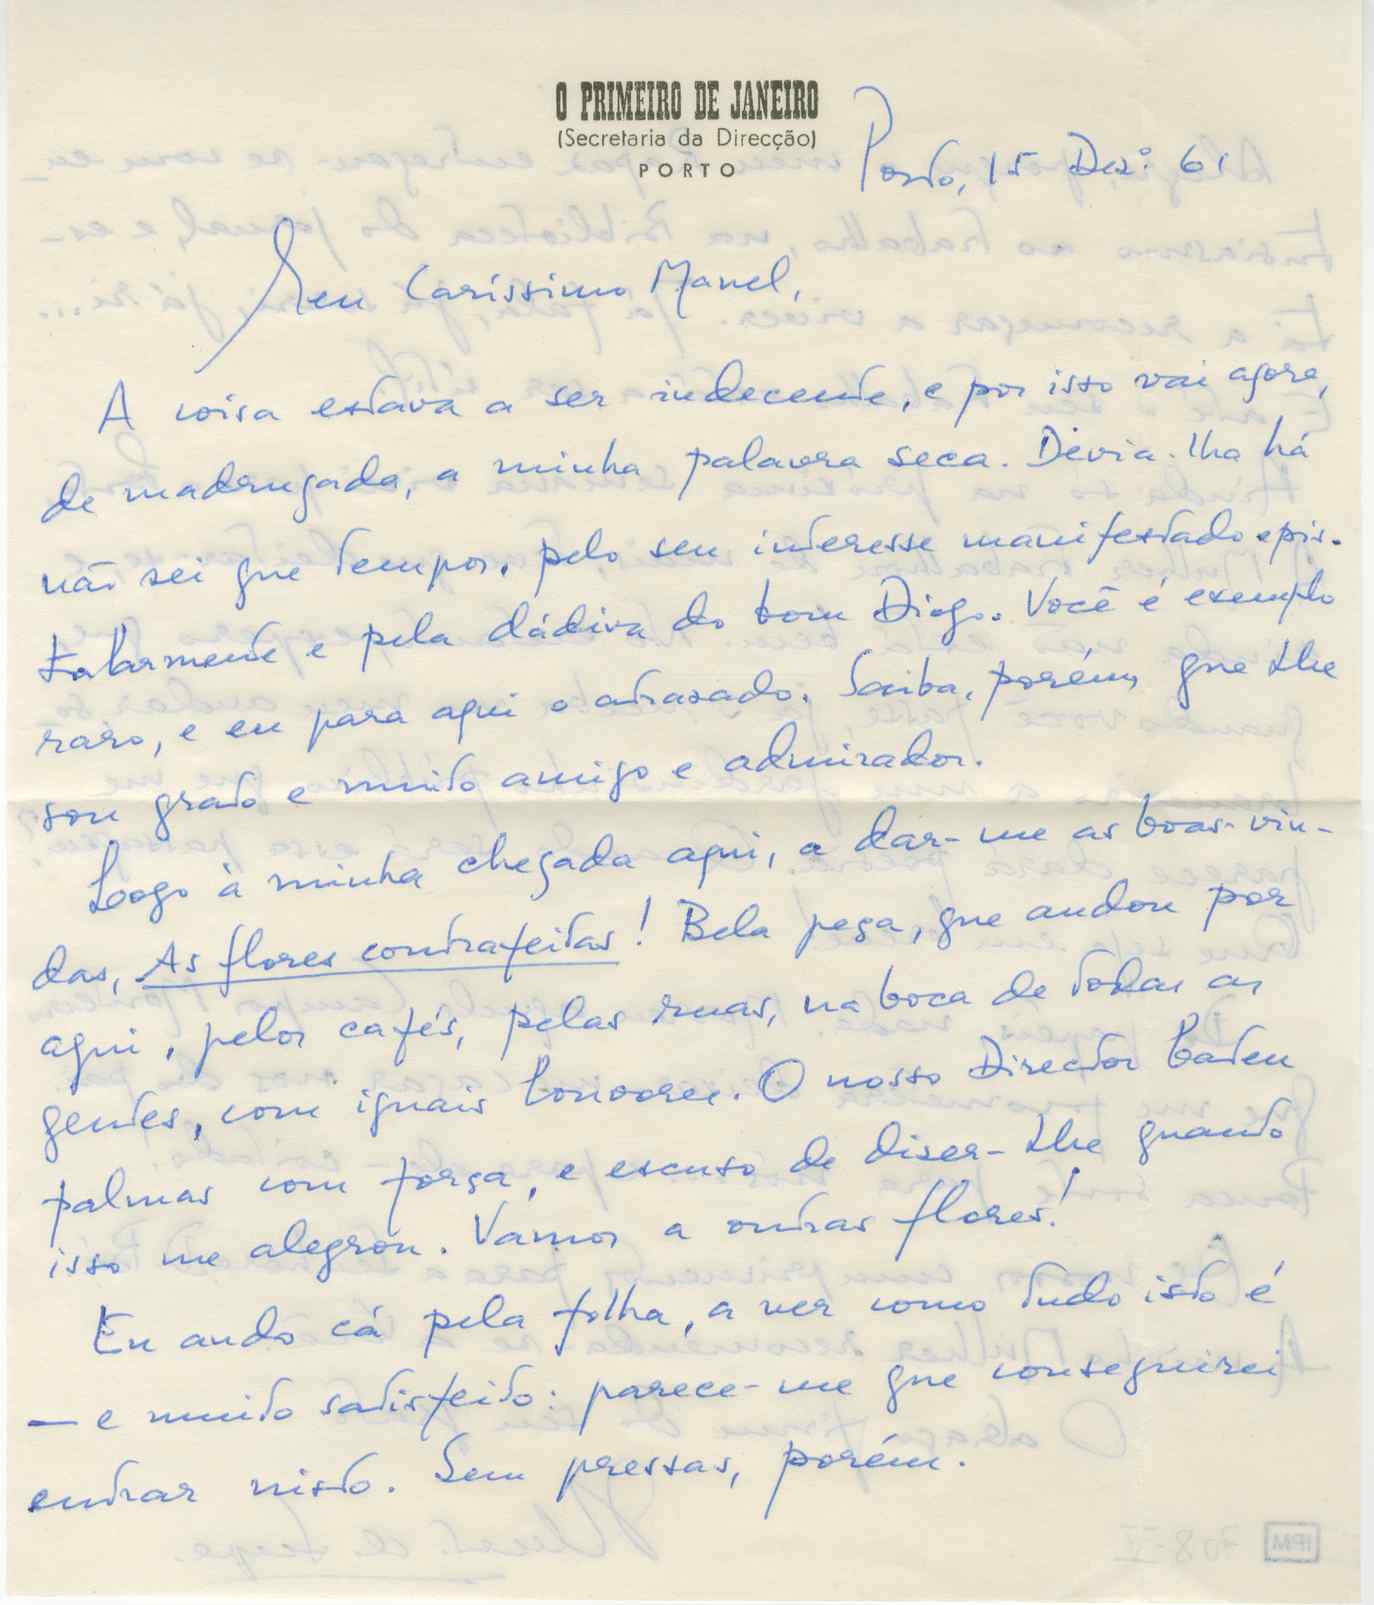 O PRIMEIRO DE JANEIRO
(Secretaria da Direcção)
PORTO
Porto, 15 Dezº 61
Meu Caríssimo Manel,
A coisa estava a ser indecente, e por isso vai agora,
de madrugada, a minha palavra seca. Devia-lha há
não sei que tempos, pelo seu interesse manifestado epis-
tolarmente e pela dádiva do bom Diogo. Você é exemplo
raro, e eu para aqui o atrasado. Saiba, porém, que lhe
sou grato e muito amigo e admirador.
Logo à minha chegada aqui, a dar-me as boas-vin-
das, As flores contrafeitas! Bela peça, que andou por
aqui, pelos cafés, pelas ruas, na boca de todas as
gentes, com iguais louvores. O nosso Director bateu
palmas com força, e escuso de dizer-lhe quanto
isso me alegrou. Vamos a outras flores!
Eu ando cá pela folha, a ver como tudo isto é
— e muito satisfeito: parece-me que conseguirei
entrar nisto. Sem pressas, porém.